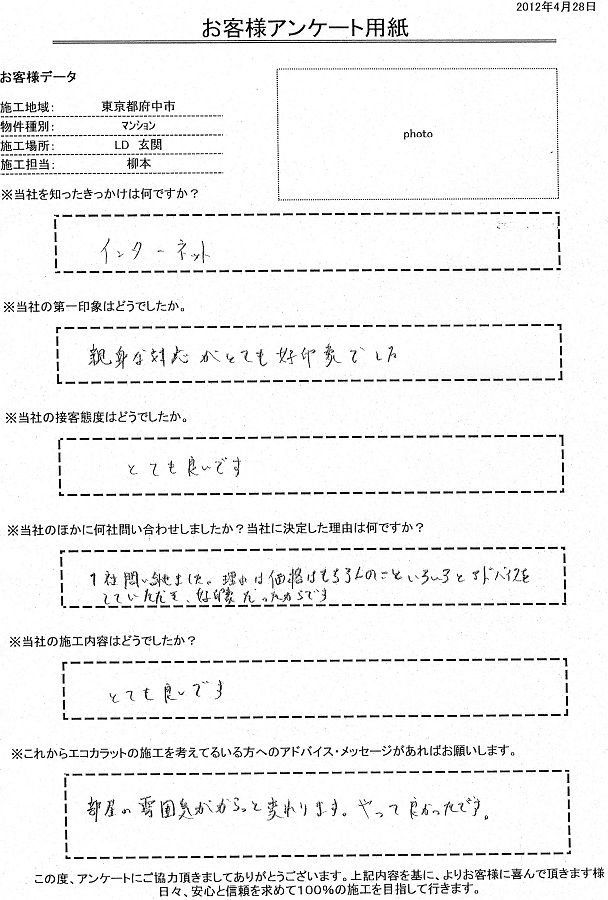 2012年4月28日
お客様アンケート用紙
お客様データ
施工地域： 東京都府中市
物件種別： マンション
施工場所： LD 玄関
施工担当： 柳本
photo
※当社を知ったきっかけは何ですか？
インターネット
※当社の第一印象はどうでしたか。
親身な対応がとても好印象でした
※当社の接客態度はどうでしたか。
とても良いです
※当社のほかに何社問い合わせしましたか？当社に決定した理由は何ですか？
1社問い合わせました。理由は価格はもちろんのこといろいろとアドバイスを
していただき、好印象だったからです
※当社の施工内容はどうでしたか？
とても良いです
※これからエコカラットの施工を考えてるいる方へのアドバイス・メッセージがあればお願いします。
部屋の雰囲気ががらっと変わります。やって良かったです。
この度、アンケートにご協力頂きましてありがとうございます。上記内容を基に、よりお客様に喜んで頂きます様
日々、安心と信頼を求めて100%の施工を目指して行きます。